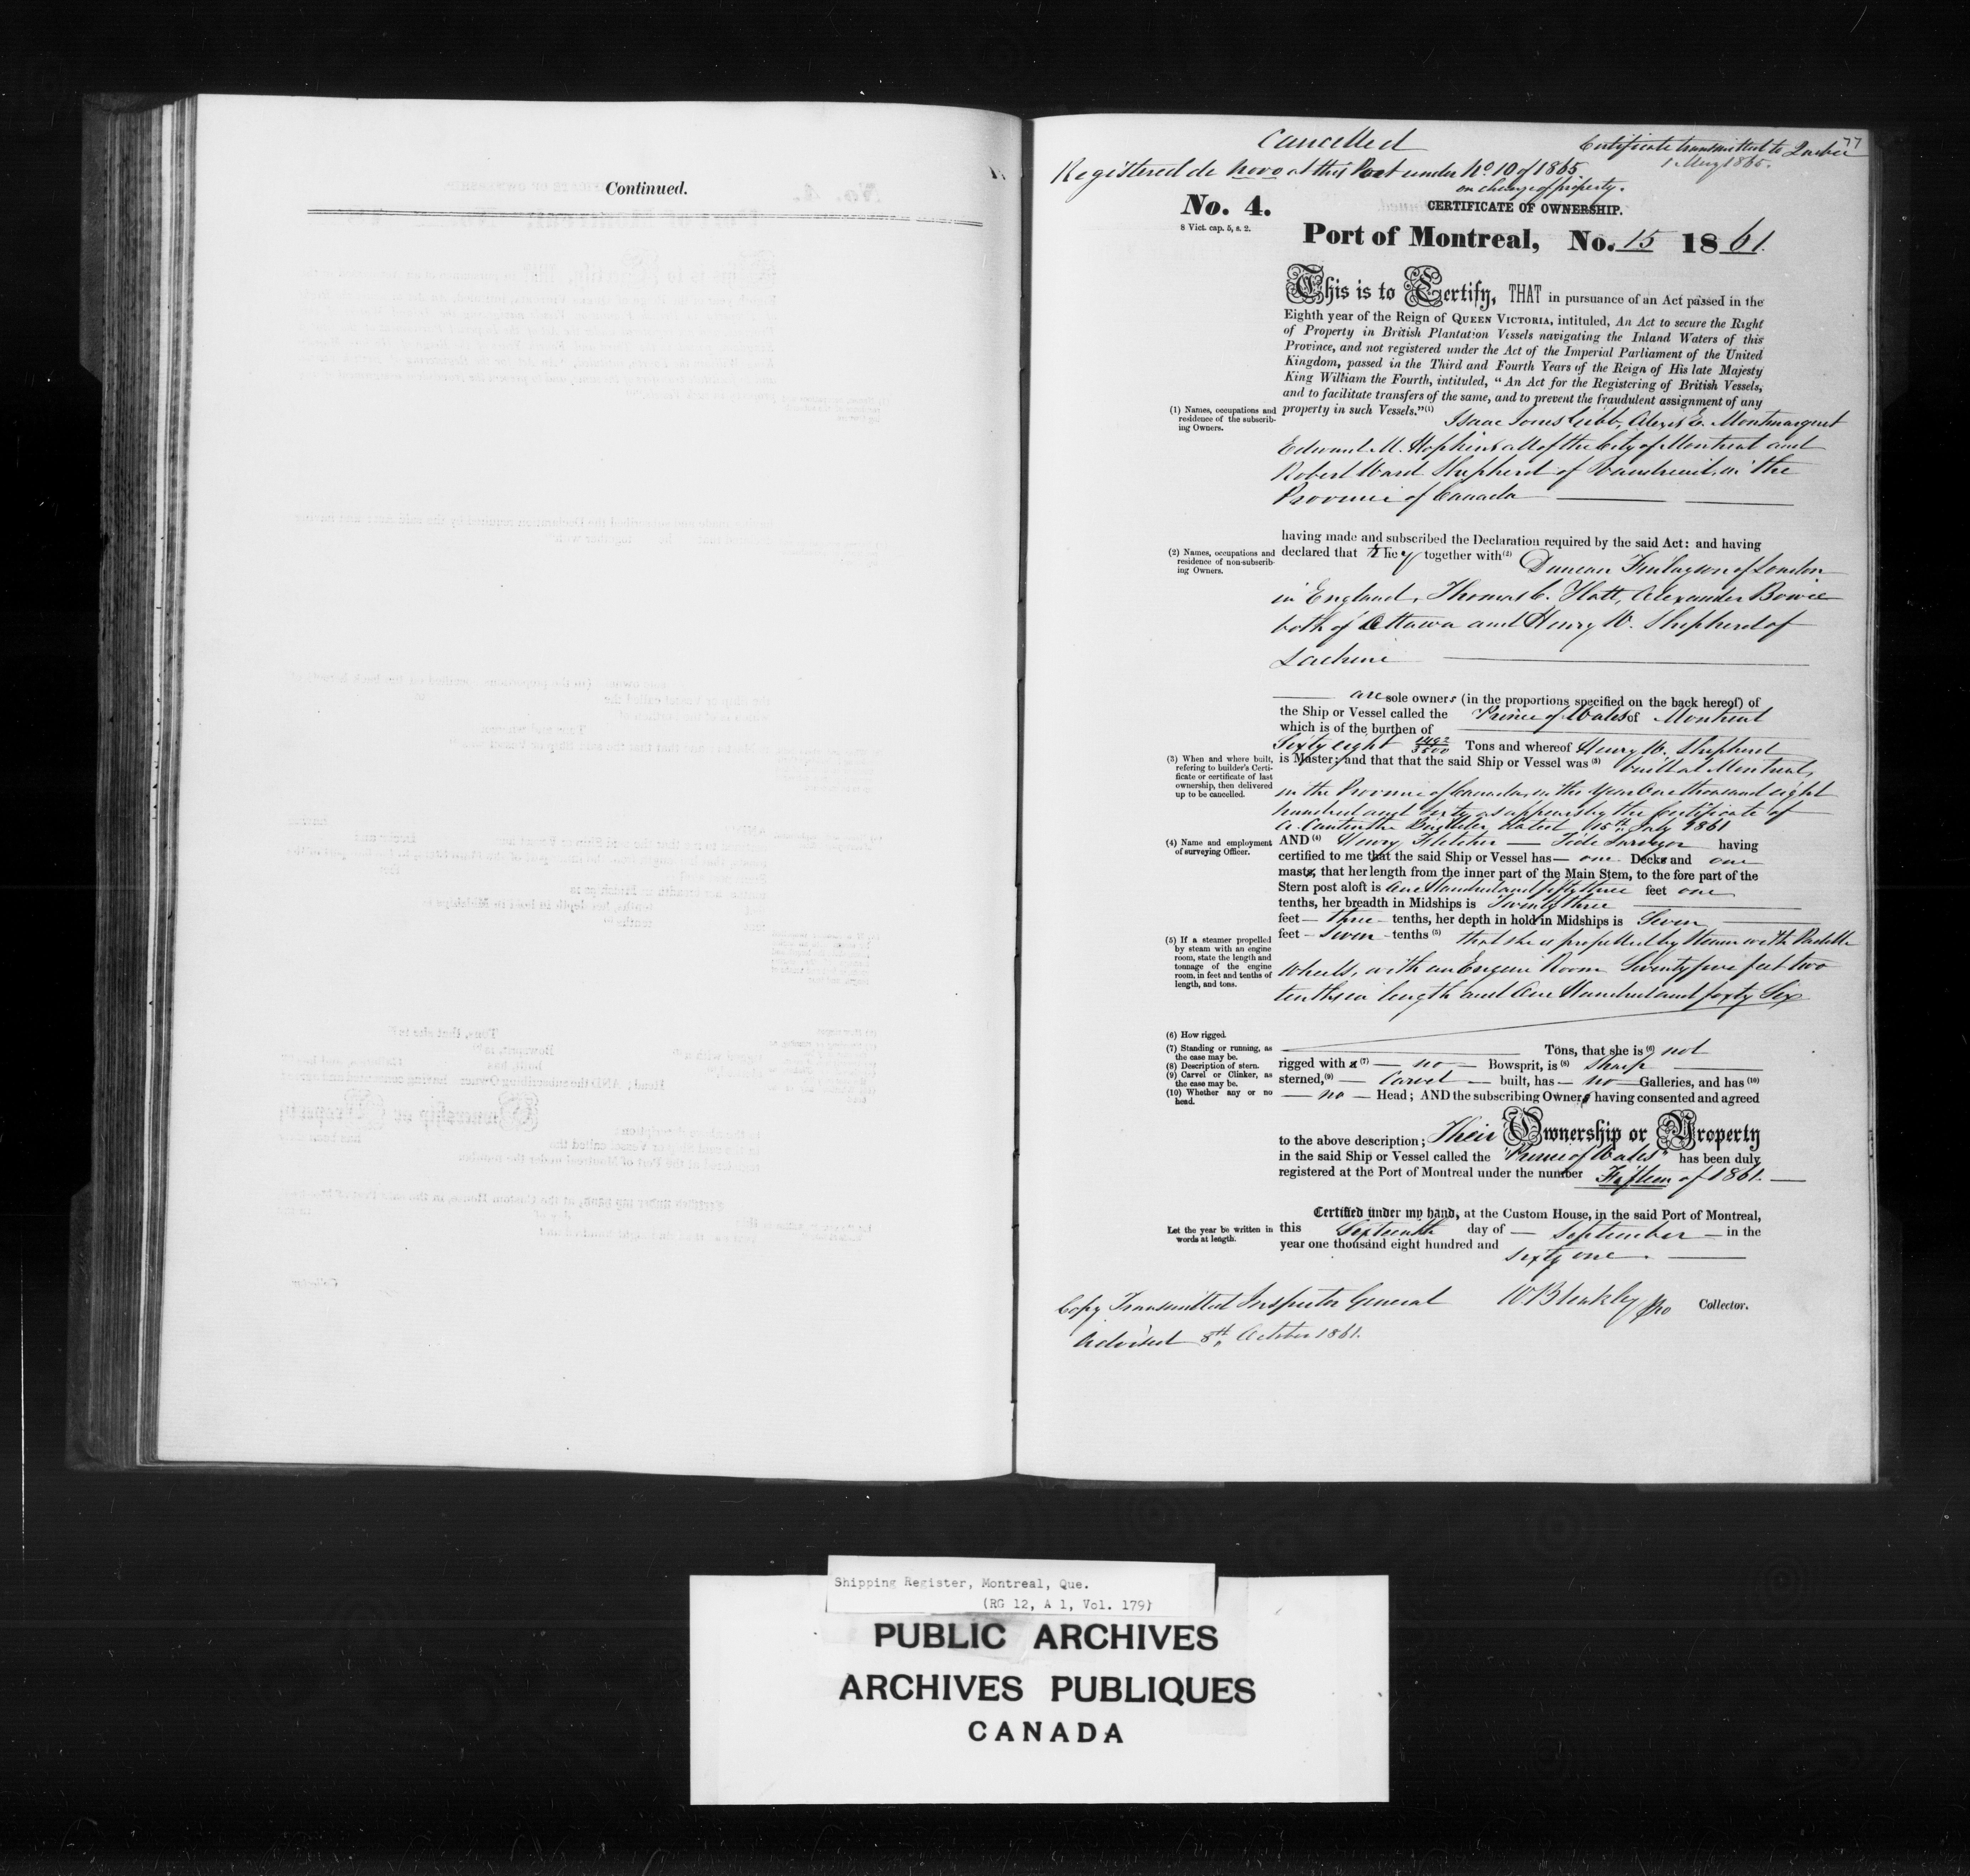 Continued.
77
Cancelled
Certificate transmitted to Quebec
1 May 1865.
Registered de novo at this Port under No. 10 of 1865
on change of property.
No. 4.
8 Vict. cap. 5, s. 2.
CERTIFICATE OF OWNERSHIP.
Port of Montreal, No. 15 1861.
This is to Certify, THAT in pursuance of an Act passed in the
Eighth year of the Reign of QUEEN VICTORIA, intituled, An Act to secure the Right
of Property in British Plantation Vessels navigating the Inland Waters of this
Province, and not registered under the Act of the Imperial Parliament of the United
Kingdom, passed in the Third and Fourth Years of the Reign of His late Majesty
King William the Fourth, intituled, "An Act for the Registering of British Vessels,
and to facilitate transfers of the same, and to prevent the fraudulent assignment of any
property in such Vessels."(1) Isaac Jones Gibb, Alexis E. Montmarquet
(1) Names, occupations and
residence of the subscrib-
ing Owners.
Edward M. Hopkins all of the City of Montreal and
Robert Ward Shepherd of Vaudreuil in the
Province of Canada
having made and subscribed the Declaration required by the said Act: and having
declared that They together with(2) Duncan Finlayson of London
(2) Names, occupations and
residence of non-subscrib-
ing Owners.
in England, Thomas C. Hatt, Alexander Bowie
both of Ottawa and Henry W. Shepherd of
Lachine
are sole owners (in the proportions specified on the back hereof) of
the Ship or Vessel called the Prince of Wales of Montreal
which is of the burthen of
Sixty eight 1492/3500 Tons and whereof Henry W. Shepherd
is Master; and that that the said Ship or Vessel was (3) built at Montreal,
(3) When and where built,
refering to builder's Certi-
ficate or certificate of last
ownership, then delivered
up to be cancelled.
in the Province of Canada, in the Year One thousand eight
hundred and sixty as appears by the Certificate of
A. Cantin the Builder, dated 15th July 1861
AND(4) Henry Fletcher — Tide Surveyor having
(4) Name and employment
of surveying Officer.
certified to me that the said Ship or Vessel has — one Decks and one
masts, that her length from the inner part of the Main Stem, to the fore part of the
Stern post aloft is One Hundred and fifty three feet one
tenths, her breadth in Midships is Twenty three
feet — three — tenths, her depth in hold in Midships is Seven
feet — Seven — tenths (5) that she is propelled by Steam with Paddle
(5) If a steamer propelled
by steam with an engine
room, state the length and
tonnage of the engine
room, in feet and tenths of
length, and tons.
Wheels, with an Engine Room Seventy five feet two
tenths in length and One Hundred and forty Six
Tons, that she is (6) not
(6) How rigged.
(7) Standing or running, as
the case may be.
(8) Description of stern.
(9) Carvel or Clinker, as
the case may be.
(10) Whether any or no
head.
rigged with a (7) — no — Bowsprit, is (8) Sharp
sterned,(9) — Carvel — built, has — no — Galleries, and has (10)
— no — Head; AND the subscribing Owners having consented and agreed
to the above description; Their Ownership or Property
in the said Ship or Vessel called the "Prince of Wales" has been duly
registered at the Port of Montreal under the number Fifteen of 1861.
Certified under my hand, at the Custom House, in the said Port of Montreal,
this Sixteenth day of — September — in the
Let the year be written in
words at length.
year one thousand eight hundred and sixty one.
Copy Transmitted Inspector General W. Bleakley Pro Collector.
Advised 8th October 1861.
Shipping Register, Montreal, Que.
(RG 12, A 1, Vol. 179)
PUBLIC ARCHIVES
ARCHIVES PUBLIQUES
CANADA